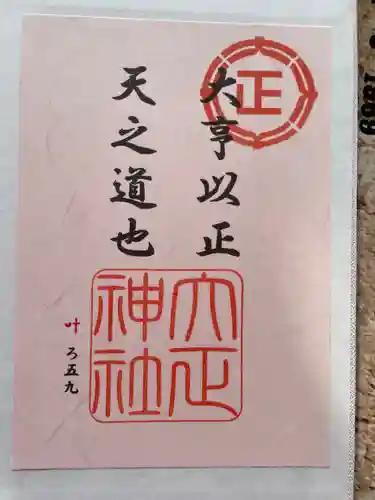 正
大亨以正
天之道也
大正
神社
叶
ろ五九
1869